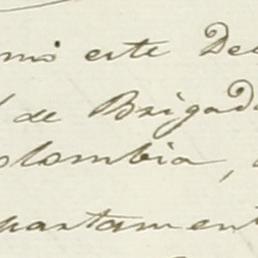 mi este De
de Brigad
olombia,
partament